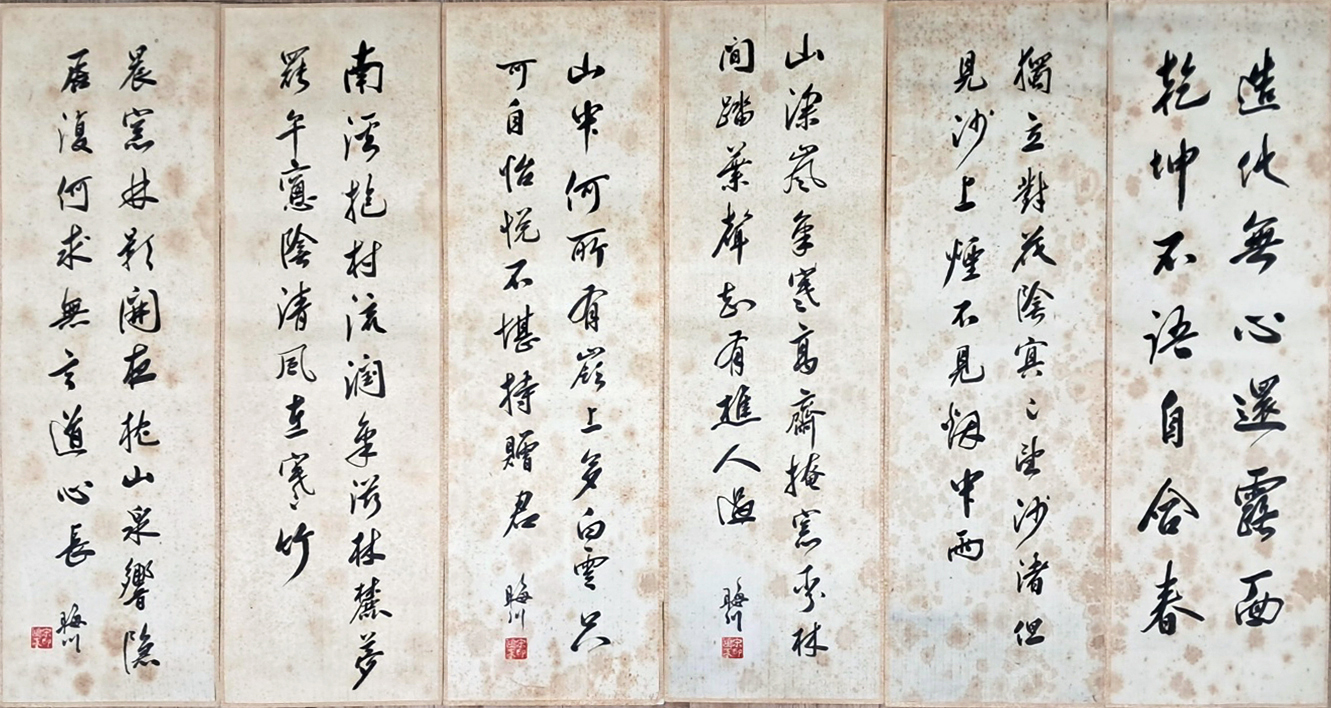 造化無心還露面
乾坤不語自含春
獨立對茂陰冥〻望沙渚但
見沙上煙不見烟中雨
山深嵐氣寒高齋掩窓林
間踏葉聲知有樵人過
晦川
山中何所有嶺上多白雲只
可自怡悅不堪持贈君
晦川
南溪抱村流潤氣滋林麓夢
罷午窻陰清風在寒竹
晨窓林影開夜枕山泉響隱
居復何求無言道心長
晦川